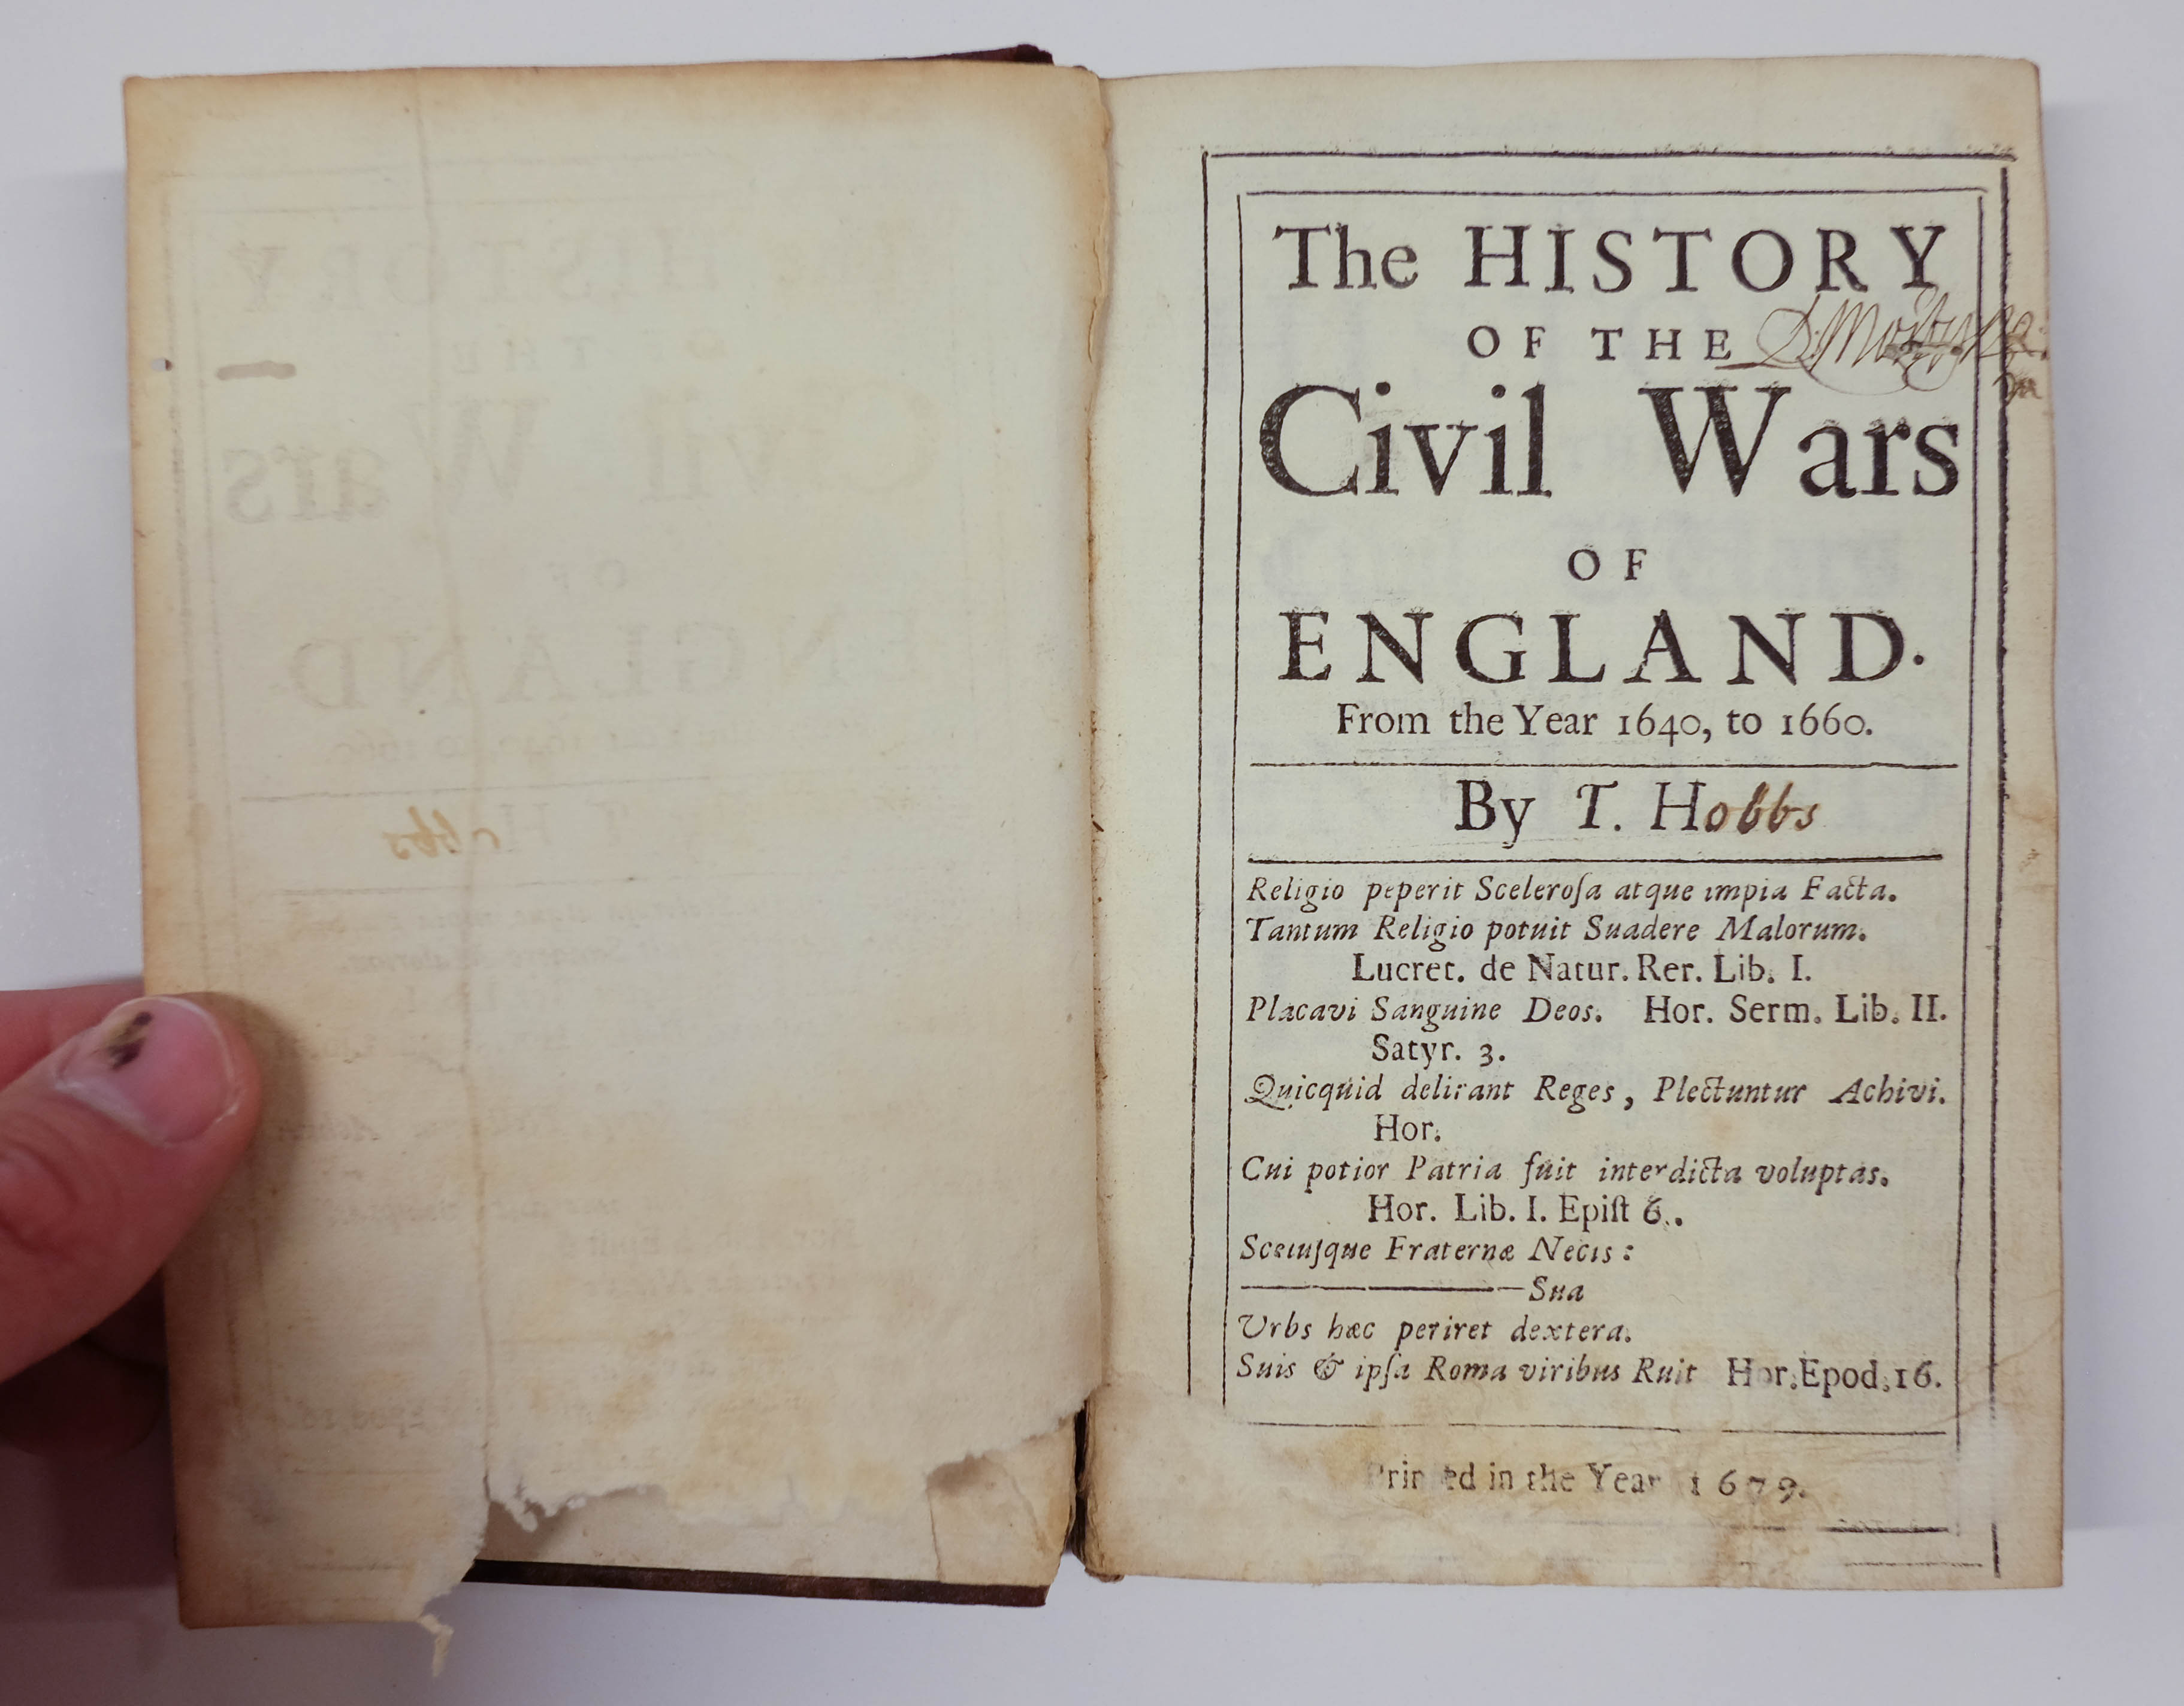 The HISTORY
OF THE
Civil Wars
OF
ENGLAND.
From the Year 1640, to 1660.
By T. Hobbs
Religio peperit Sceleroſa atque impia Facta.
Tantum Religio potuit Suadere Malorum.
Lucret. de Natur. Rer. Lib. I.
Placavi Sanguine Deos. Hor. Serm. Lib. II.
Satyr. 3.
Quicquid delirant Reges, Plectuntur Achivi.
Hor.
Cui potior Patria fuit interdicta voluptas.
Hor. Lib. I. Epiſt 6.
Scelusque Fraternæ Necis:
Sua
Urbs hæc periret dextera.
Suis & ipſa Roma viribus Ruit Hor. Epod. 16.
Printed in the Year 1679.